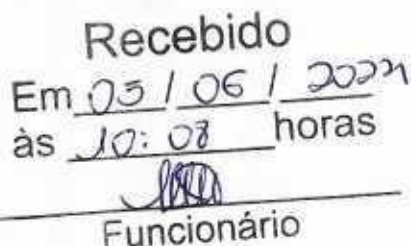 Recebido
Em 05 / 06 / 2024
às 10:08 horas
Funcionário